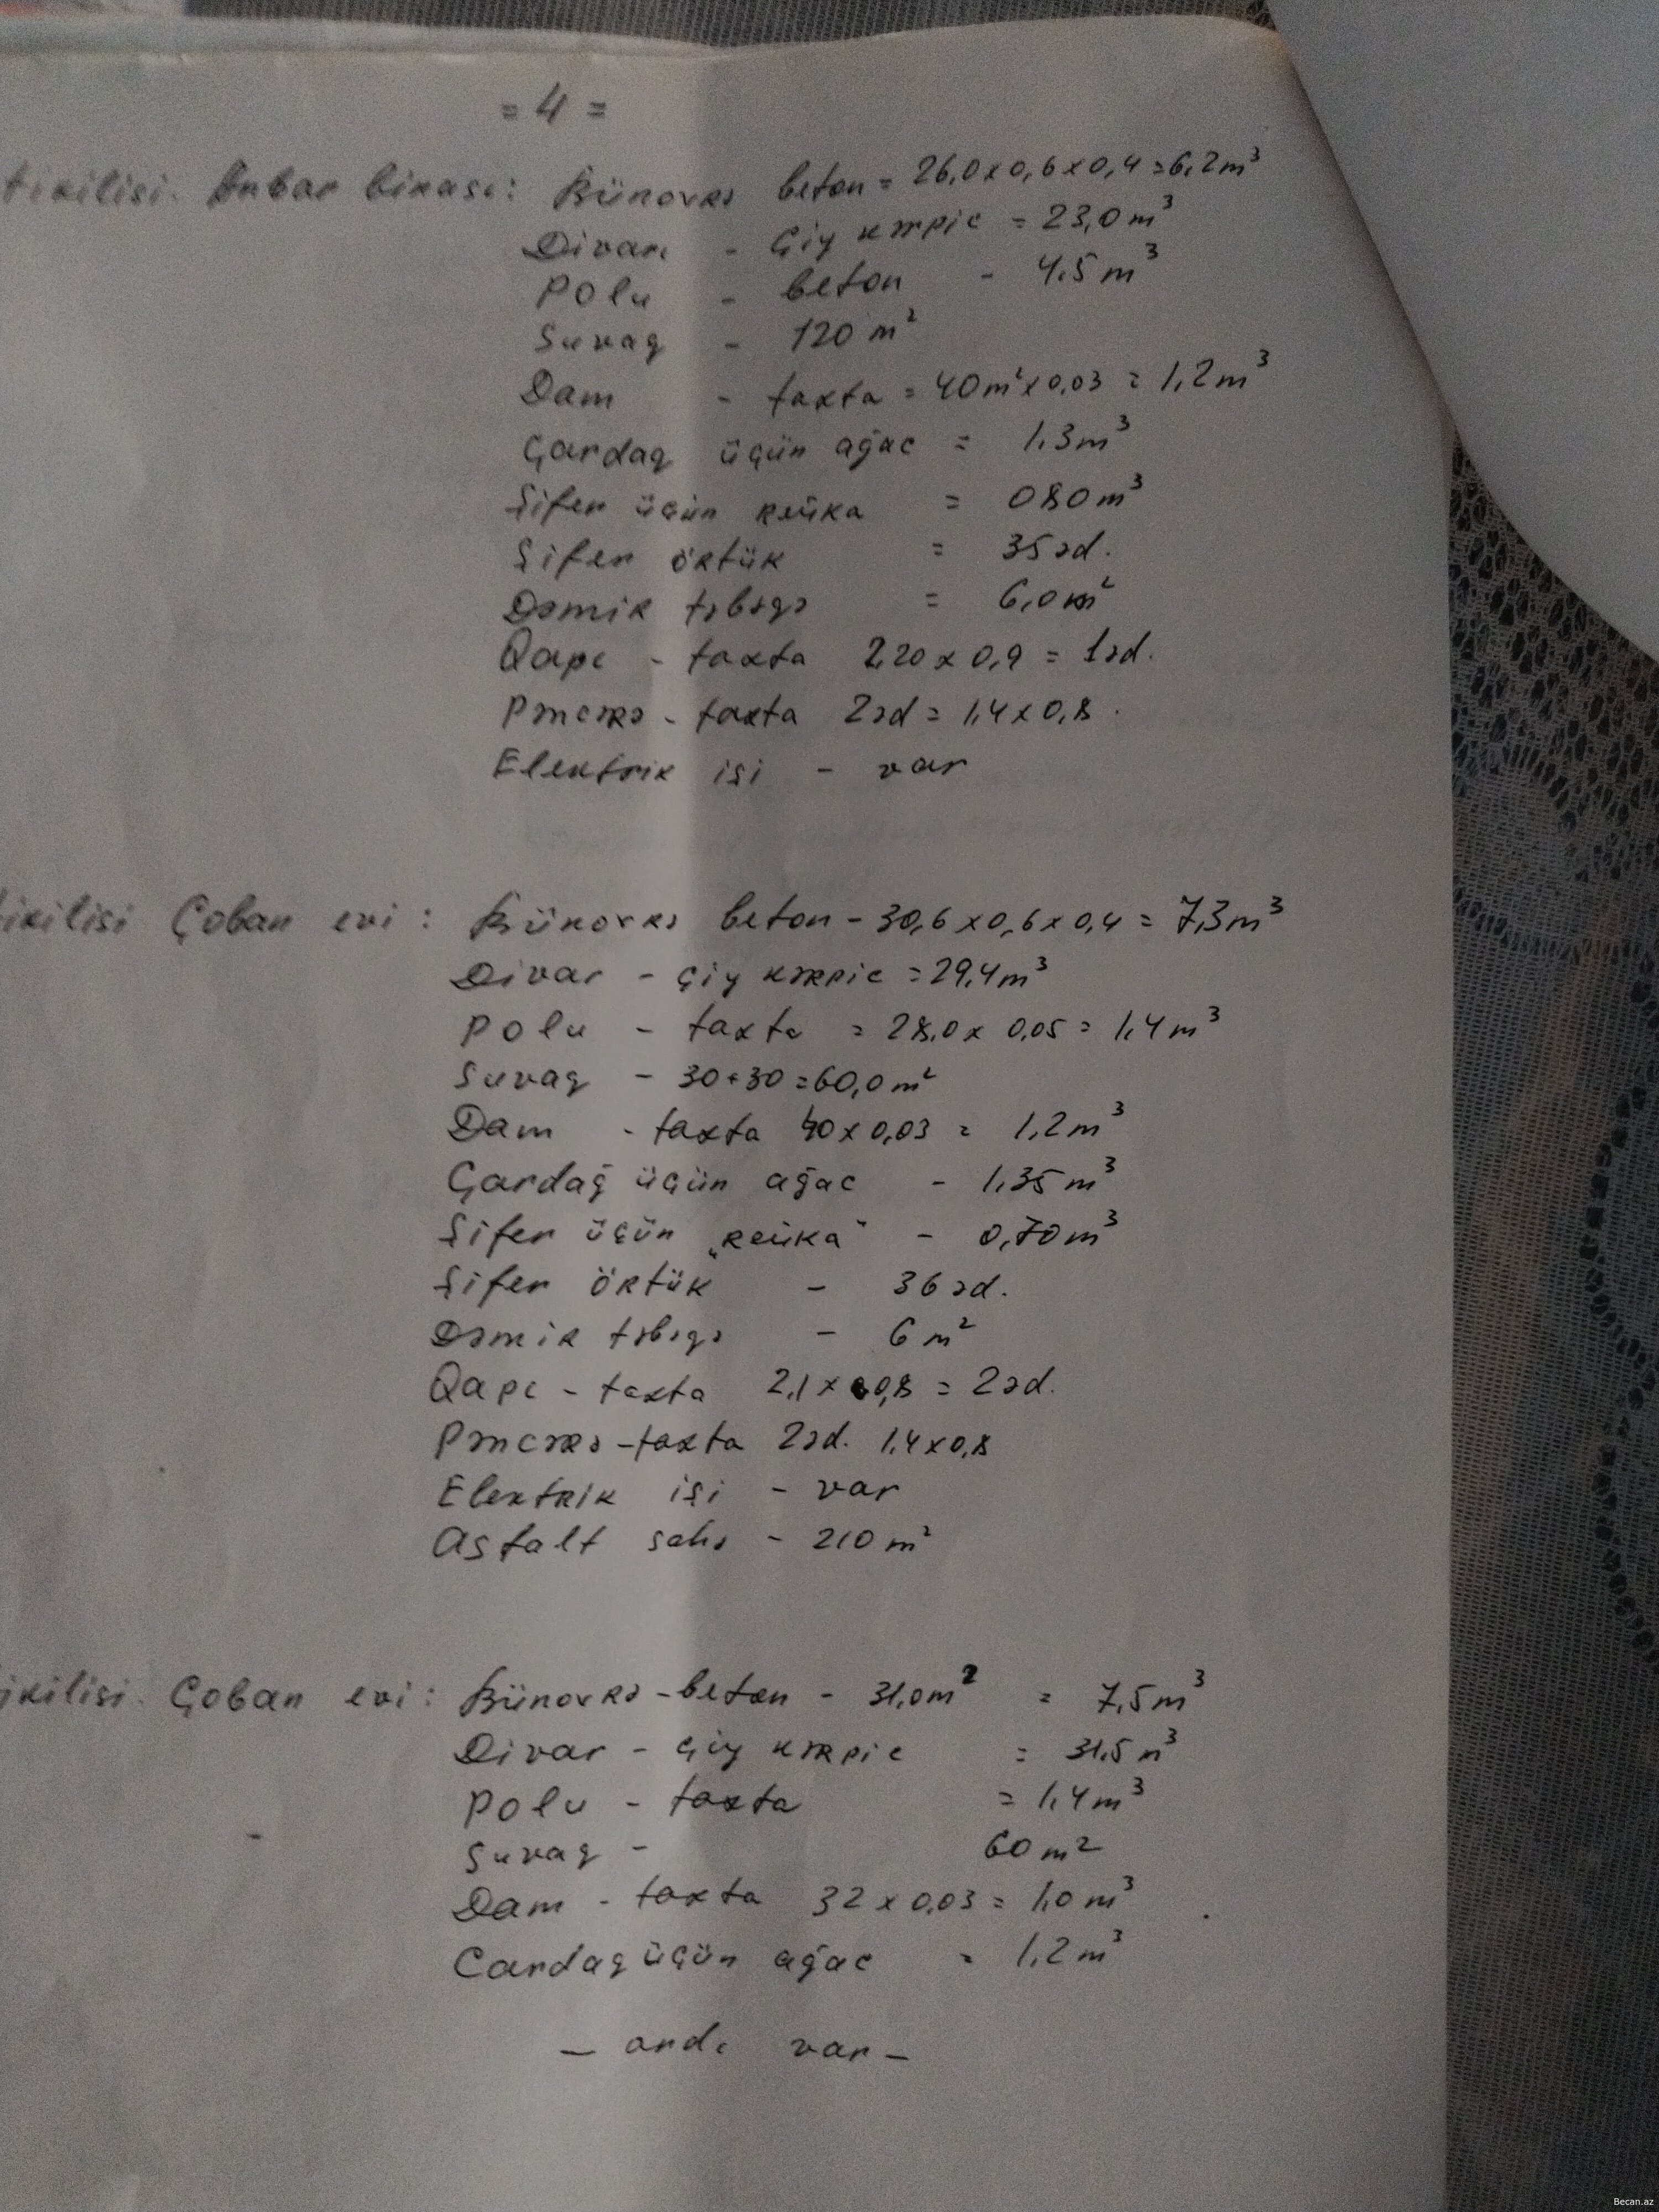 = 4 =
tikilisi. Anbar binası: Bünövrə beton = 26,0x0,6x0,4=6,2m³
Divarı - Çiy kərpic = 23,0m³
Polu - beton - 4,5m³
Suvaq - 120 m²
Dam - taxta = 40m²x0,03 = 1,2m³
Çardaq üçün ağac = 1,3m³
Şifer üçün reyka = 080m³
Şifer örtük = 35əd.
Dəmir təbəqə = 6,0m²
Qapı - taxta 2,20x0,9 = 1əd.
Pəncərə - taxta 2əd = 1,4x0,8.
Elektrik işi - var
ikilisi Çoban evi: Bünövrə beton - 30,6x0,6x0,4 = 7,3m³
Divar - çiy kərpic = 29,4m³
Polu - taxta = 28,0x0,05 = 1,4m³
Suvaq - 30+30=60,0m²
Dam - taxta 40x0,03 = 1,2m³
Çardağ üçün ağac - 1,35m³
Şifer üçün „reyka" - 0,70m³
Şifer örtük - 36əd.
Dəmir təbəqə - 6m²
Qapı - taxta 2,1x0,8 = 2əd.
Pəncərə - taxta 2əd. 1,4x0,8
Elektrik işi - var
Asfalt sahə - 210m²
ikilisi. Çoban evi: Bünövrə - beton - 31,0m² = 7,5m³
Divar - çiy kərpic = 31,5m³
Polu - taxta = 1,4m³
Suvaq - 60m²
Dam - taxta 32x0,03 = 1,0m³
Cardaq üçün ağac = 1,2m³
- ardı var -
Becan.az